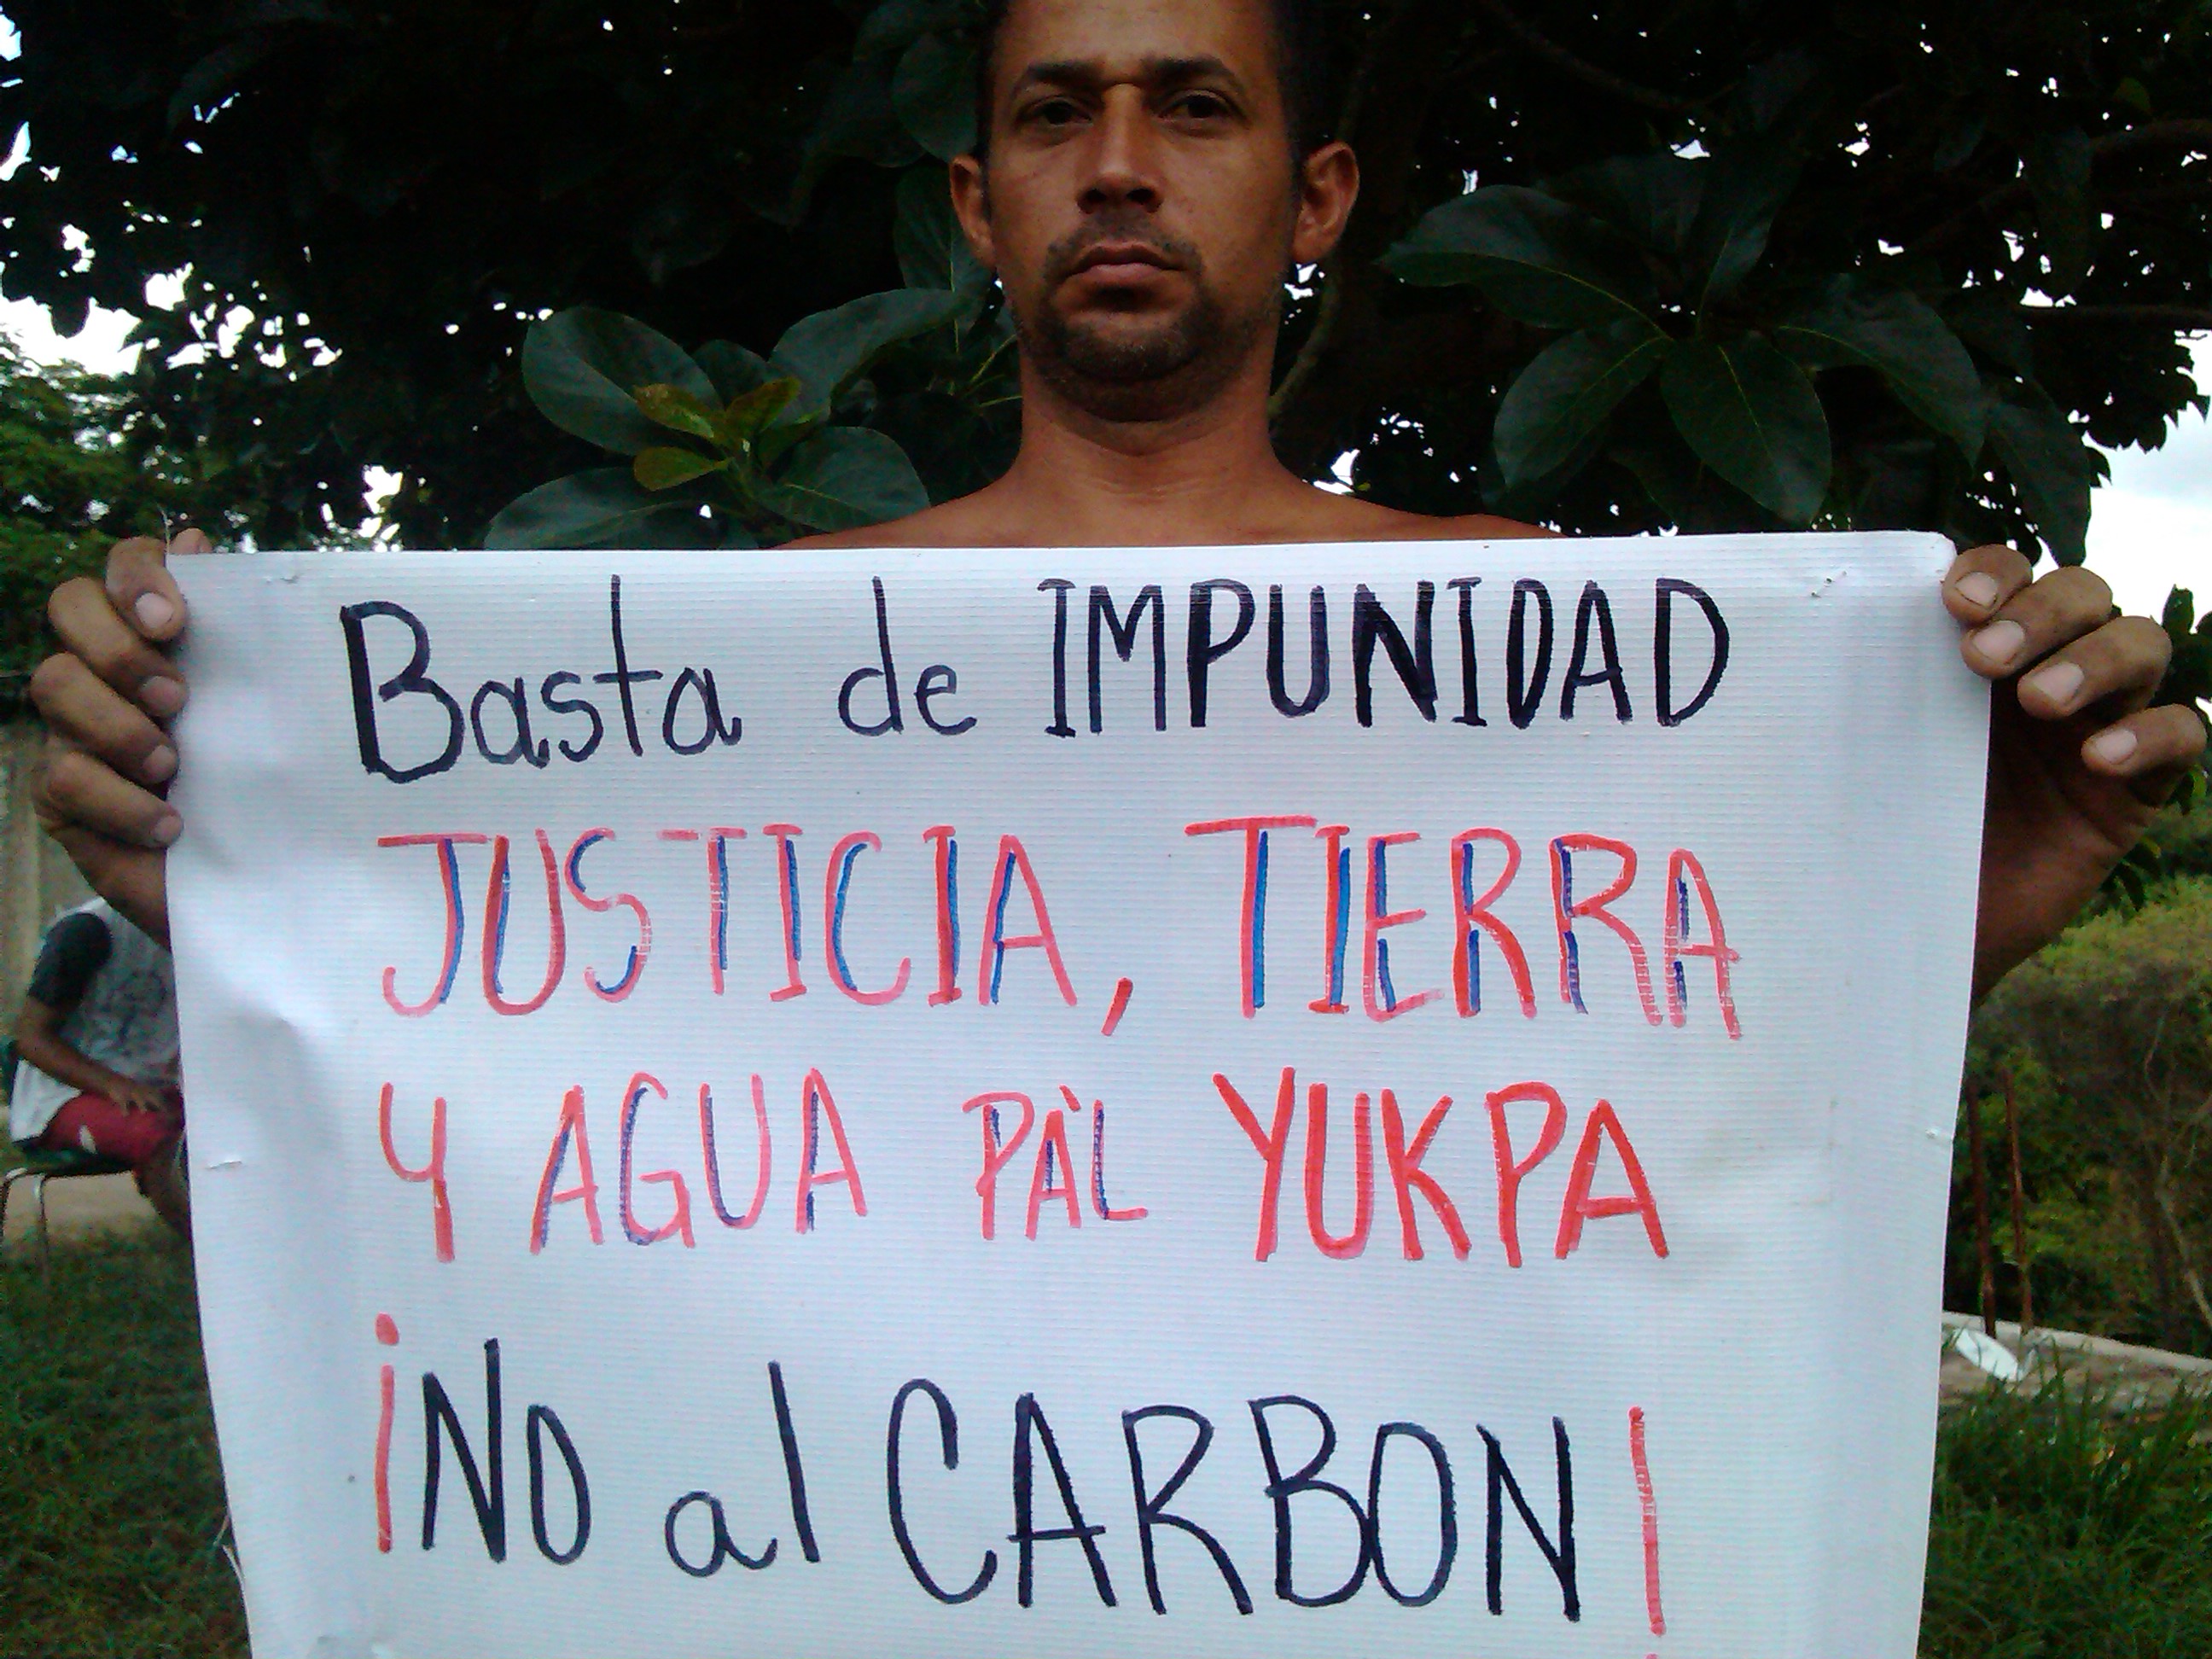 Basta de IMPUNIDAD
JUSTICIA, TIERRA
Y AGUA PÀL YUKPA
¡NO al CARBON!